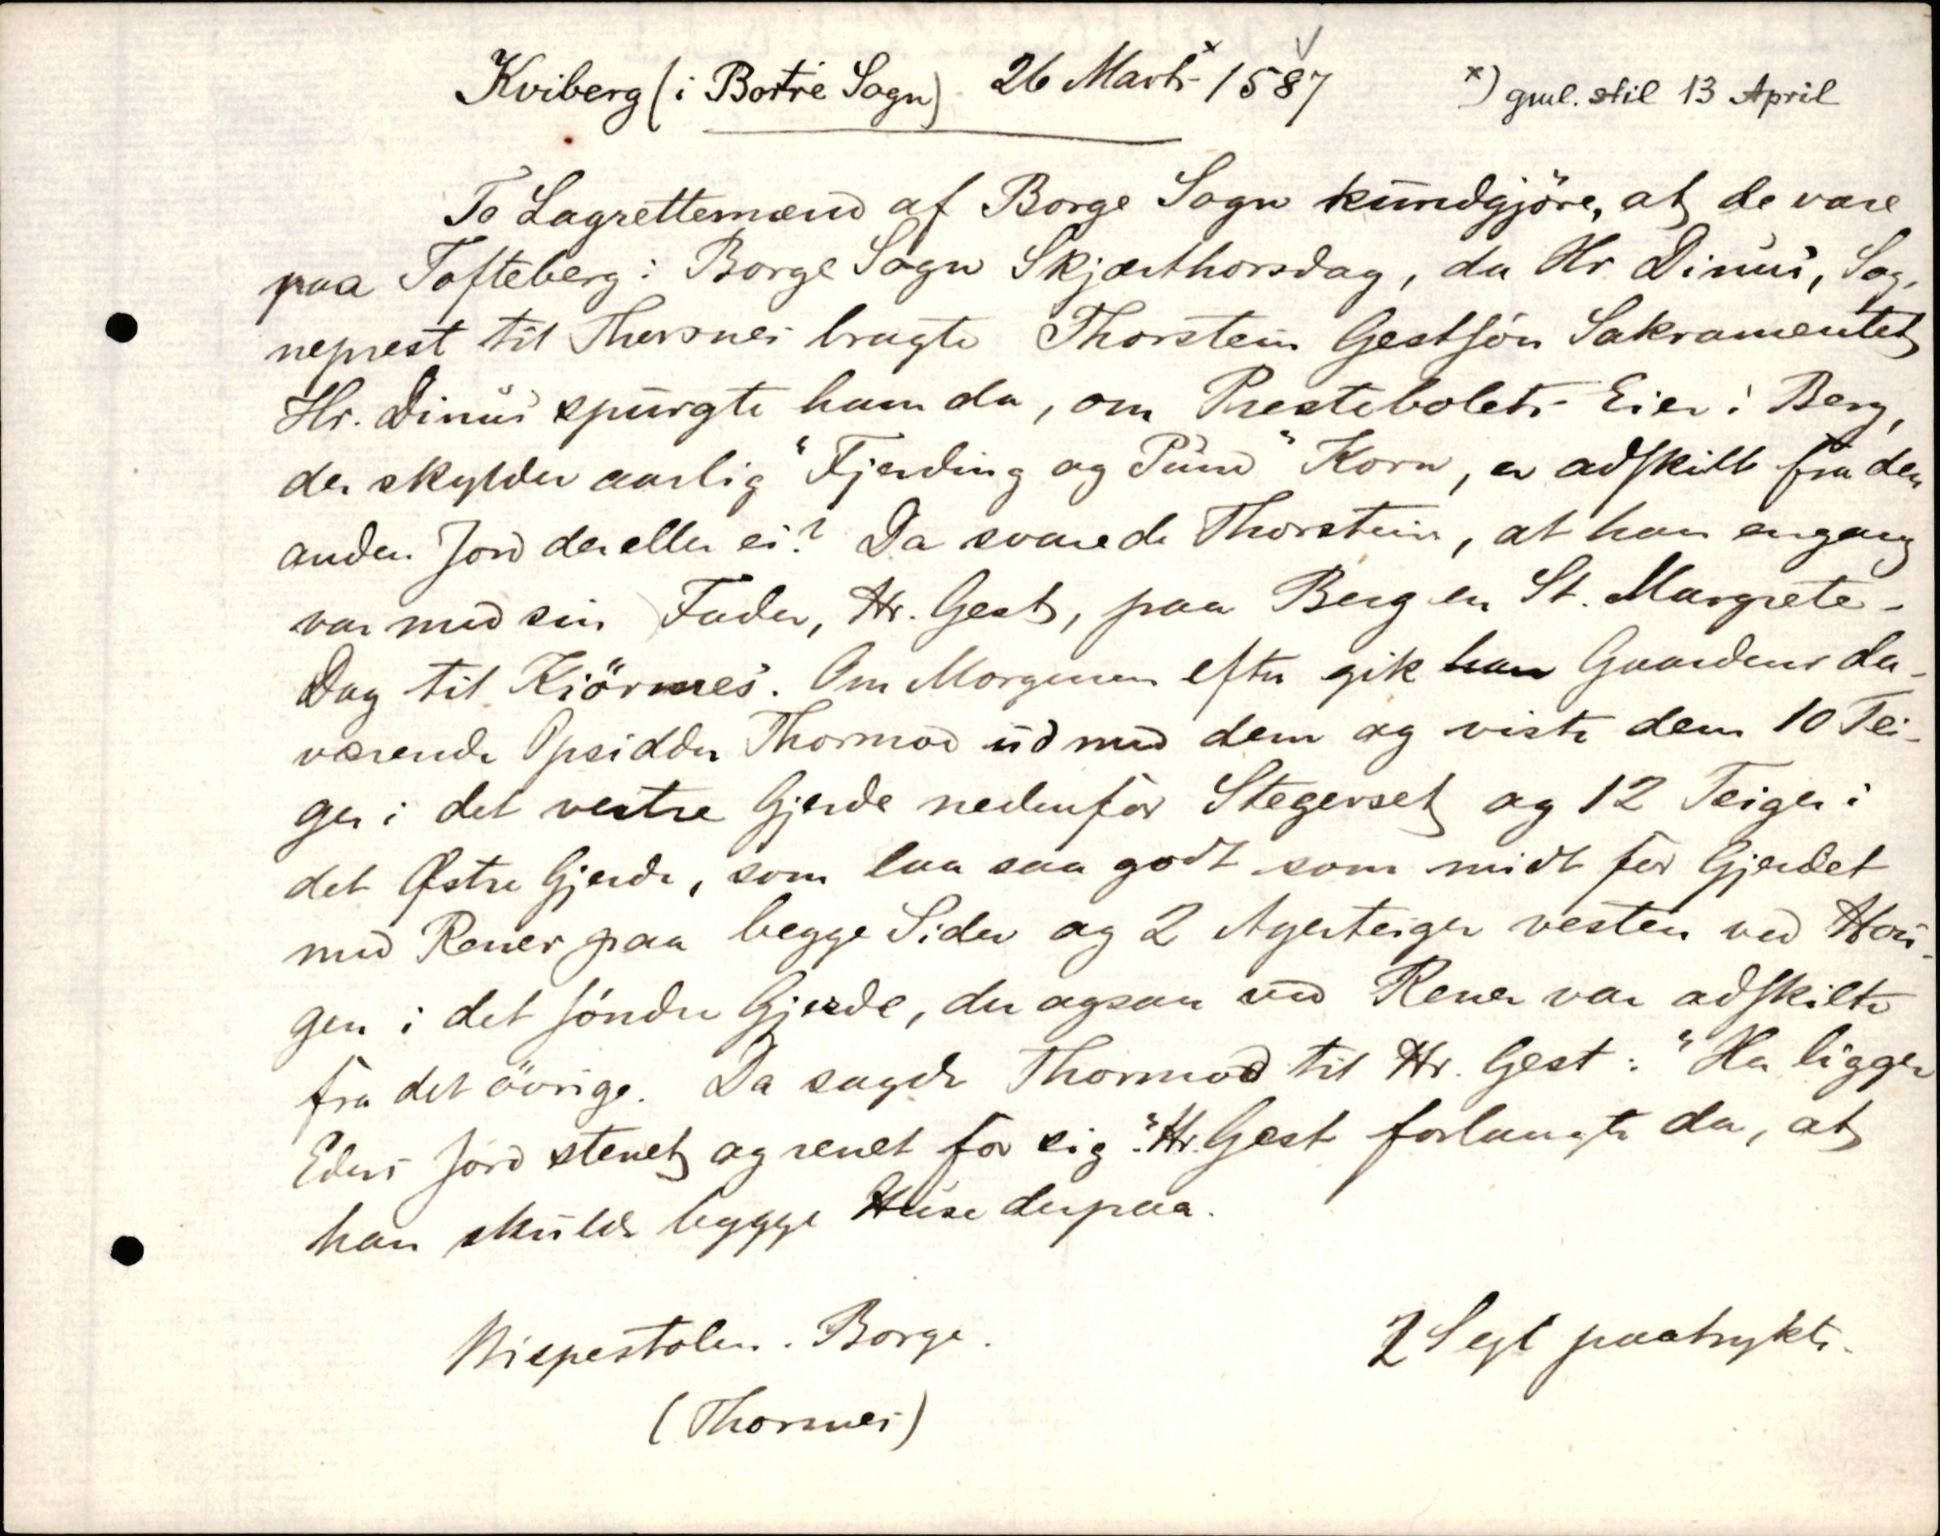 Kviberg (i Bortre Sogn) 26 Marts x 1587 x) gml. stil 13 April
To Lagrettemænd af Borge Sogn kundgjöre, at de vare
paa Tofteberg i Borge Sogn Skjærthorsdag, da Hr Dinus, Sog-
neprest til Thorsnes bragte Thorstein Gestsön Sakramentet
Hr. Dinus spurgte ham da, om Prestebolets Eier i Berg,
der skylder aarlig "Fjerding og Pund" Korn, er adskilt fra den
anden Jord der eller ei? Da svarede Thorstein, at han engang
var med sin Fader, Hr. Gest, paa Berg en St. Margrete-
Dag til Kiörmes. Om Morgenen efter gik han Gaardens da-
værende Opsidder Thormod ud med dem og viste dem 10 Tei-
ger i det vestre Gjerde nedenfor Stegerset og 12 Teiger i
det Østre Gjerde, som laa saa godt som midt for Gjerdet
med Rener paa begge Sider og 2 Agerteiger vesten ved Hou-
gen i det söndre Gjerde, der ogsaa ved Rener var adskilte
fra det övrige. Da sagde Thormod til Hr. Gest: "Her ligger
Eders Jord stenet og renet for sig". Hr. Gest forlangte da, at
han skulde bygge Huse derpaa.
Bispestolen. Borge. 2 Segl paatrykte.
(Thorsnes)